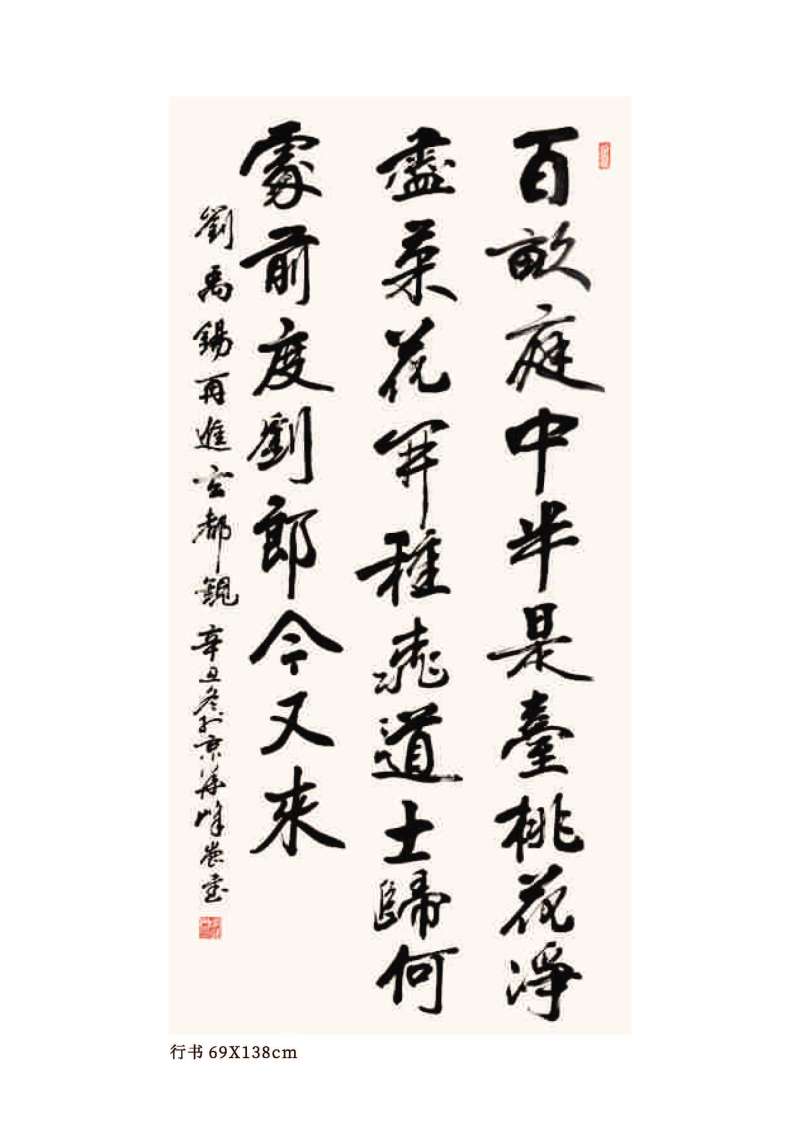 百畝庭中半是臺桃花淨
盡菜花開種桃道士歸何
處前度劉郎今又來
劉禹錫再進玄都觀 辛丑冬於京華峰書
行书 69X138cm